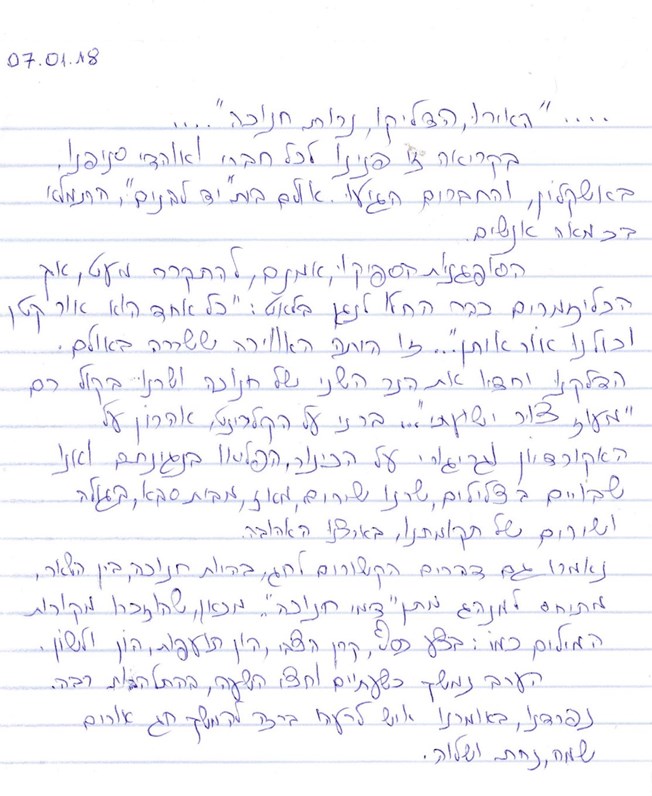 07.01.18
...."האירו, הדליקו, נרות חנוכה"....
בקריאה זו פנינו לכל חברי ואוהדי סניפנו,
באשקלון, והחברים הגיעו. אולם בית "יד לבנים", התמלא
בכמאה אנשים.
הסופגניות הספיקו, אמנם, להתקרר מעט, אך
הכליזמרים כבר החלו לנגן בלאט: "כל אחד הוא אור קטן
וכולנו אור איתן"... זו היתה האווירה ששררה באולם.
הדלקנו יחדיו את הנר השני של חנוכה ושרנו בקול רם
"מעוז צור ישועתי"... ברני על הקלרינט, אהרון על
האקורדיון וגריגורי על הכינור, הפליאו בנגינתם ואנו
שבויים בצלילים, שרנו שירים, מאז, מבית סבא, בגולה
ושירים של תקומתנו, בארצנו האהובה.
נאמרו גם דברים הקשורים לחג, בהיות חנוכה, בין השאר,
מתיחס למנהג מתן "דמי חנוכה". מכאן, שהוזכרו מקורות
המילים כמו: בצע כסף, קרן הצבי, הון תועפות, הון ולשון.
הערב נמשך כשעתיים וחצי השעה, בהתלהבות רבה.
נפרדנו, באומרנו איש לרעהו ברכה להמשך חג אורים
שמח, נחת ושלווה.